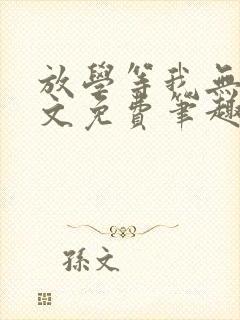 放學等我無
文免費筆趣
孫文